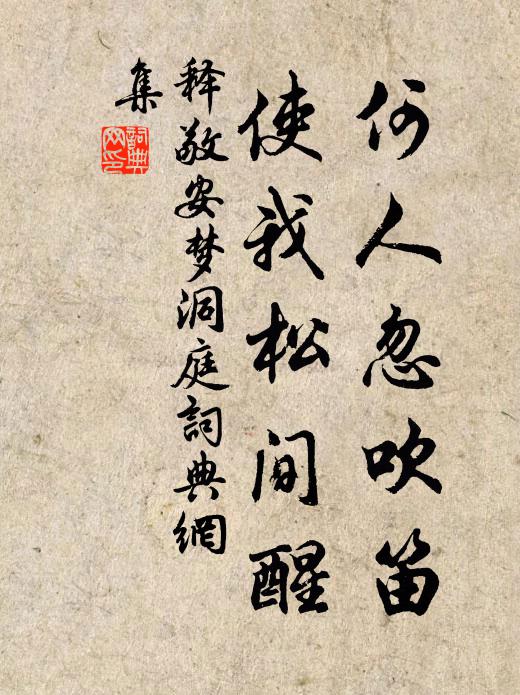 何人忽吹笛
使我松间醒
释敬安梦洞庭詞典網
集
詞典
网印